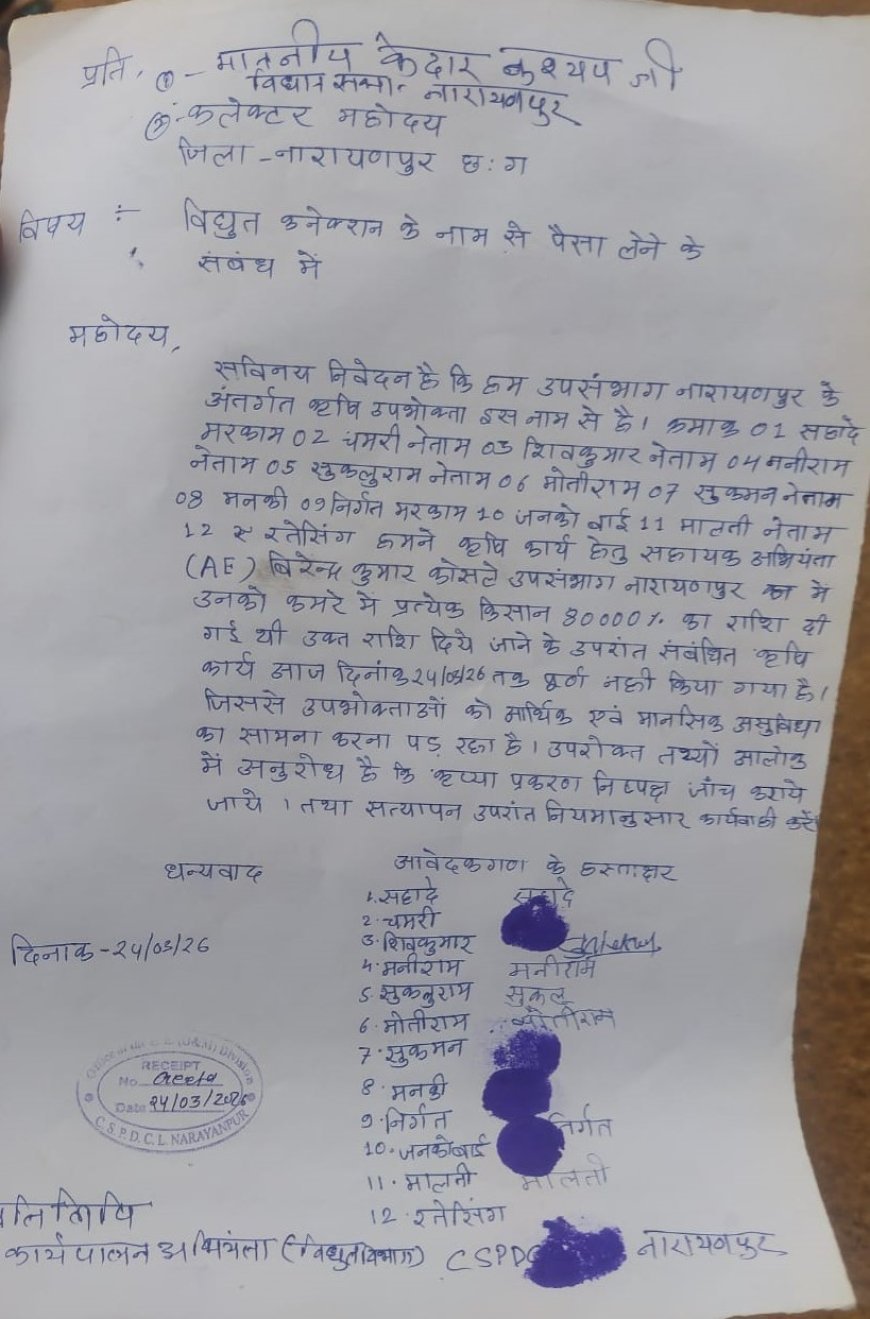 प्रति, ① - माननीय केदार कश्यप जी
विधानसभा. नारायणपुर
② - कलेक्टर महोदय
जिला - नारायणपुर छ: ग
विषय :- विद्युत कनेक्शन के नाम से पैसा लेने के
संबंध में
महोदय,
सविनय निवेदन है कि हम उपसंभाग नारायणपुर के
अंतर्गत कृषि उपभोक्ता इस नाम से है। क्रमाक 01 सहादे
मरकाम 02 चमरी नेताम 03 शिवकुमार नेताम 04 मनीराम
नेताम 05 सुकलुराम नेताम 06 मोतीराम 07 सुकमन नेताम
08 मनकी 09 निर्गत मरकाम 10 जनको बाई 11 मालती नेताम
12 रनेसिंग हमने कृषि कार्य हेतु सहायक अभियंता
(AE) बिरेन्द्र कुमार कोसले उपसंभाग नारायणपुर में
उनको कमरे में प्रत्येक किसान 80000/. का राशि दी
गई थी उक्त राशि दिये जाने के उपरांत संबंधित कृषि
कार्य आज दिनांक 24/03/26 तक पूर्ण नही किया गया है।
जिससे उपभोक्ताओं को आर्थिक एवं मानसिक असुविधा
का सामना करना पड़ रहा है। उपरोक्त तथ्यों आलोक
में अनुरोध है कि कृप्या प्रकरण निष्पक्ष जाँच कराये
जाये। तथा सत्यापन उपरांत नियमानुसार कार्यवाही करें।
धन्यवाद
आवेदकगण के हस्ताक्षर
1. सहादे सहादे
2. चमरी
दिनाक - 24/03/26
3. शिवकुमार
4. मनीराम मनीराम
5. सुकलुराम सुकलू
6. मोतीराम मोतीराम
7. सुकमन
8. मनकी
9. निर्गत निर्गत
10. जनकोबाई
11. मालती मालती
12. रनेसिंग
(O&M) Division
RECEIPT
No. Geeta
Date 24/03/2026
C.S.P.D.C.L. NARAYANPUR
कार्यपालन अभियंता (विद्युत विभाग) CSPDC नारायणपुर